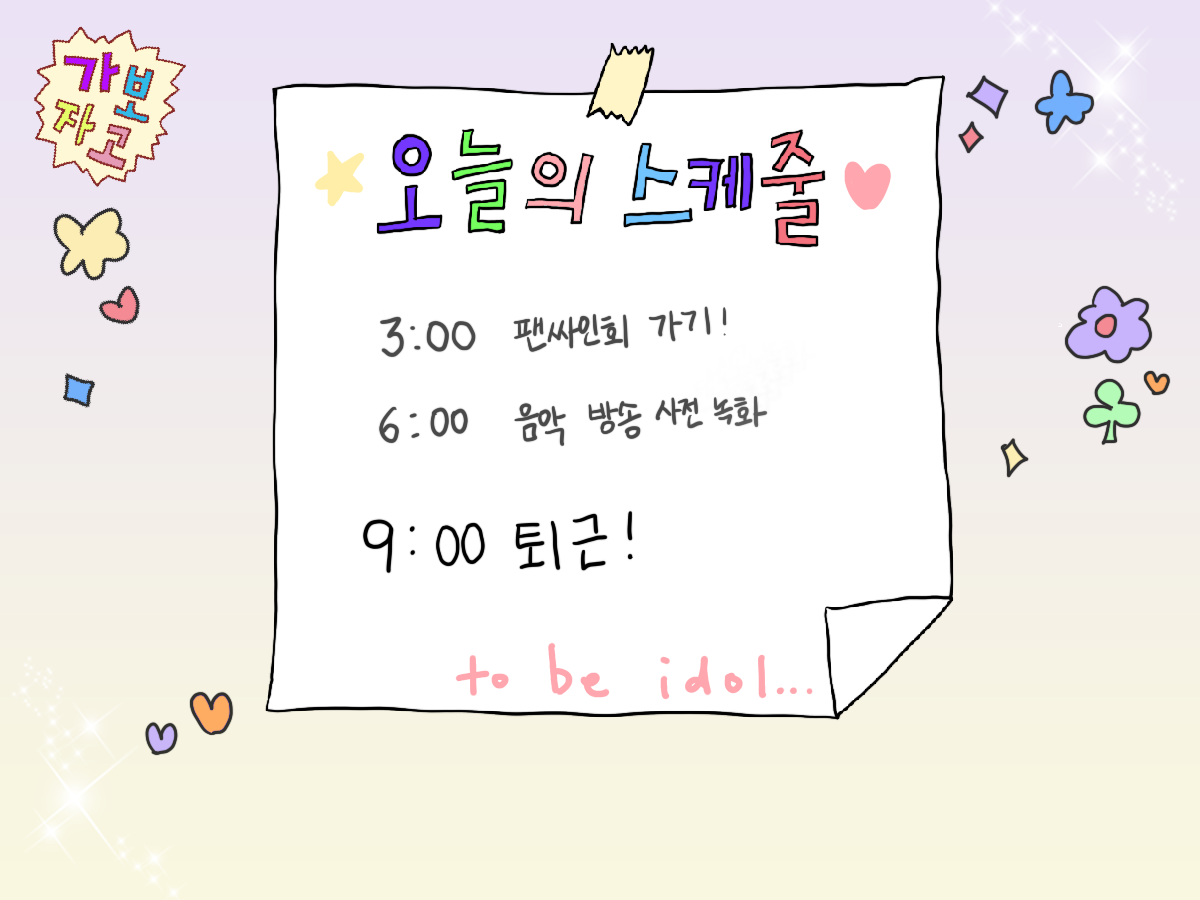 가보
자고
오늘의 스케줄
3:00 팬싸인회 가기!
6:00 음악 방송 사전 녹화
9:00 퇴근!
to be idol...